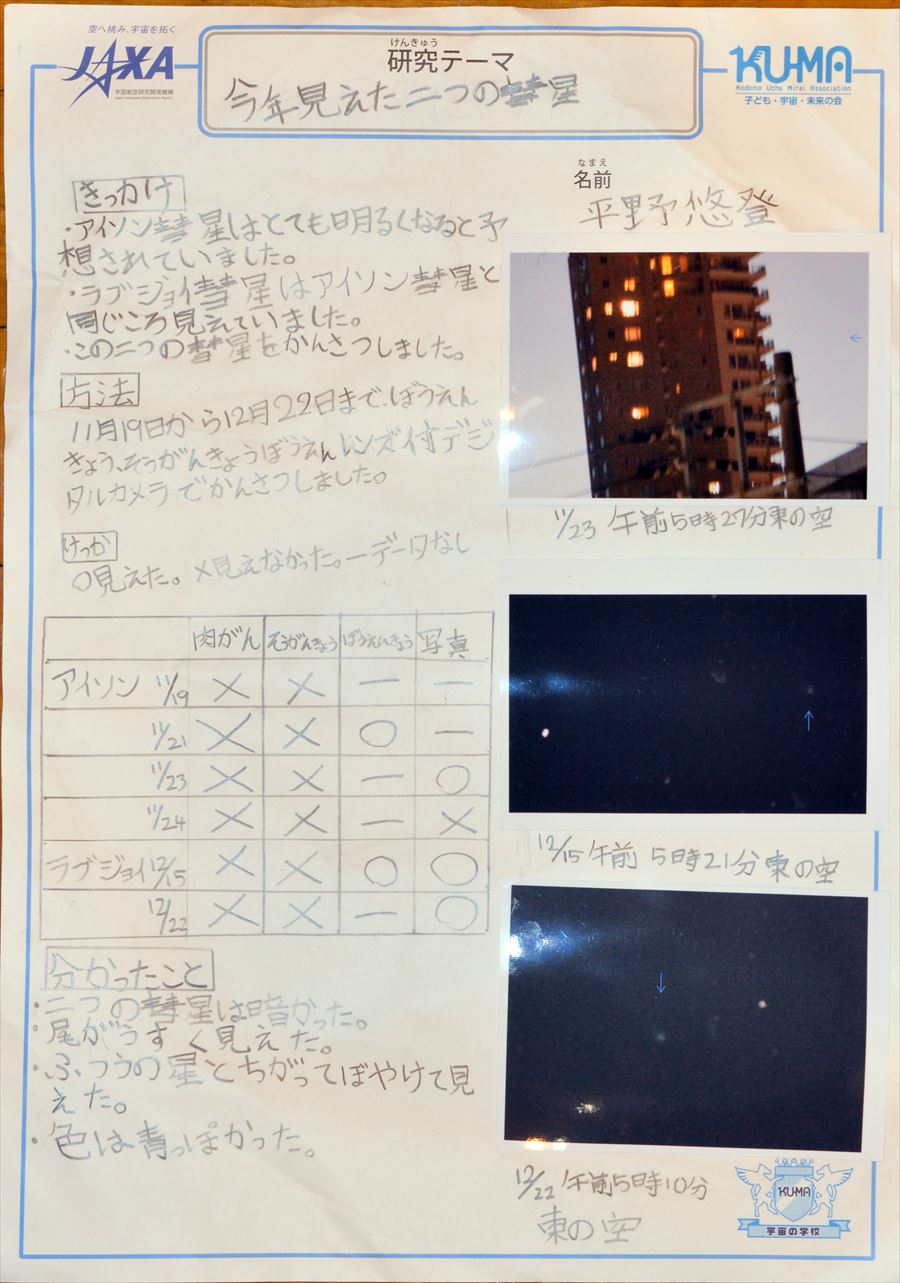 空へ挑み、宇宙を拓く
JAXA
宇宙航空研究開発機構
Japan Aerospace Exploration Agency
けんきゅう
研究テーマ
今年見えた二つの彗星
KU-MA
Kodomo Uchu Mirai Association
子ども・宇宙・未来の会
なまえ
名前
平野悠登
きっかけ
・アイソン彗星はとても明るくなると予
想されていました。
・ラブジョイ彗星はアイソン彗星と
同じころ見えていました。
・この二つの彗星をかんさつしました。
方法
11月19日から12月22日まで、ぼうえん
きょう、そうがんきょうぼうえんレンズ付デジ
タルカメラでかんさつしました。
けっか
○見えた。×見えなかった。ーデータなし
肉がん そうがんきょう ぼうえんきょう 写真
アイソン 11/19 × × ー ー
11/21 × × ○ ー
11/23 × × ー ○
11/24 × × ー ×
ラブジョイ 12/15 × × ○ ○
12/22 × × ー ○
分かったこと
・二つの彗星は暗かった。
・尾がうすく見えた。
・ふつうの星とちがってぼやけて見
えた。
・色は青っぽかった。
←
11/23 午前5時27分東の空
↑
12/15 午前 5時21分東の空
↓
12/22 午前5時10分
東の空
KU-MA
宇宙の学校